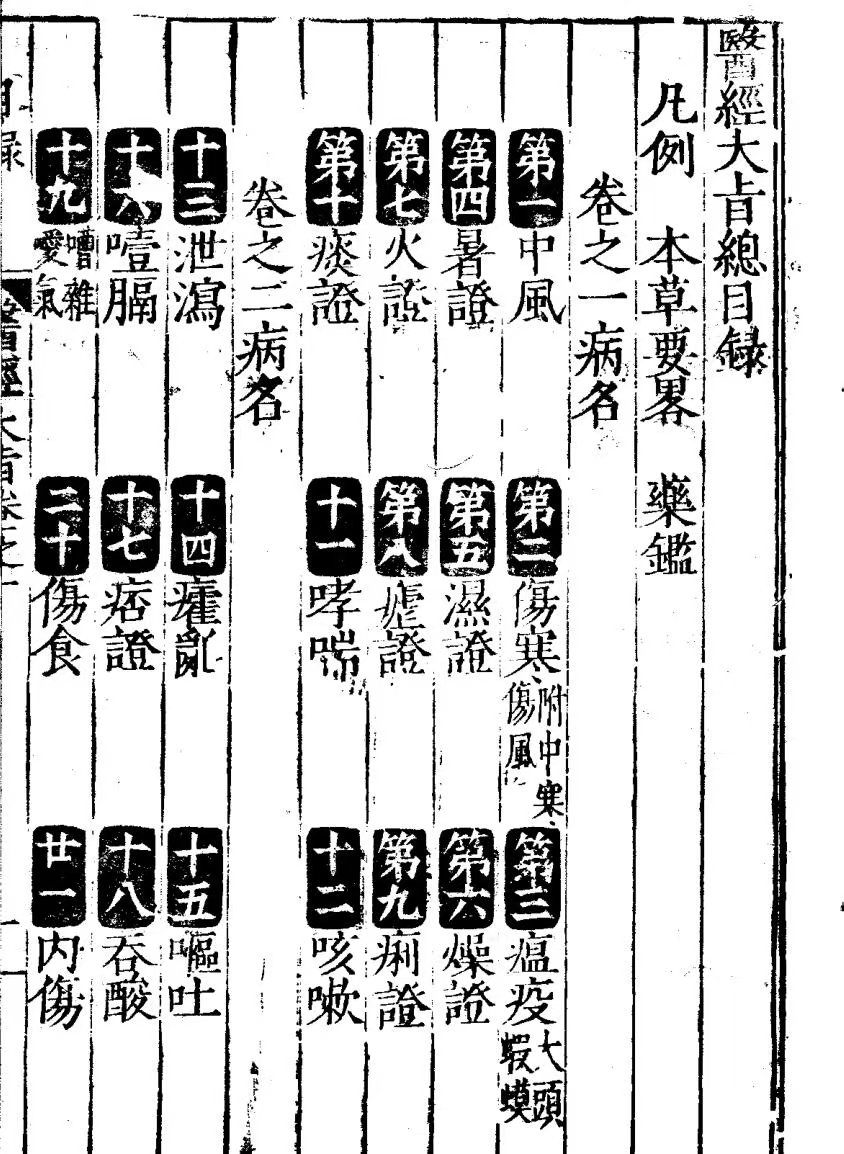 醫經大旨總目録
凡例　本草要畧　藥鑑
卷之一病名
第一中風　第二傷寒附中寒傷風　第三瘟疫大頭蝦蟆
第四暑證　第五濕證　第六燥證
第七火證　第八瘧證　第九痢證
第十痰證　十一哮喘　十二咳嗽
卷之二病名
十三泄瀉　十四癨亂　十五嘔吐
十六噎膈　十七痞證　十八吞酸
十九嘈雜噯氣　二十傷食　廿一内傷
目録　醫經大旨卷之一